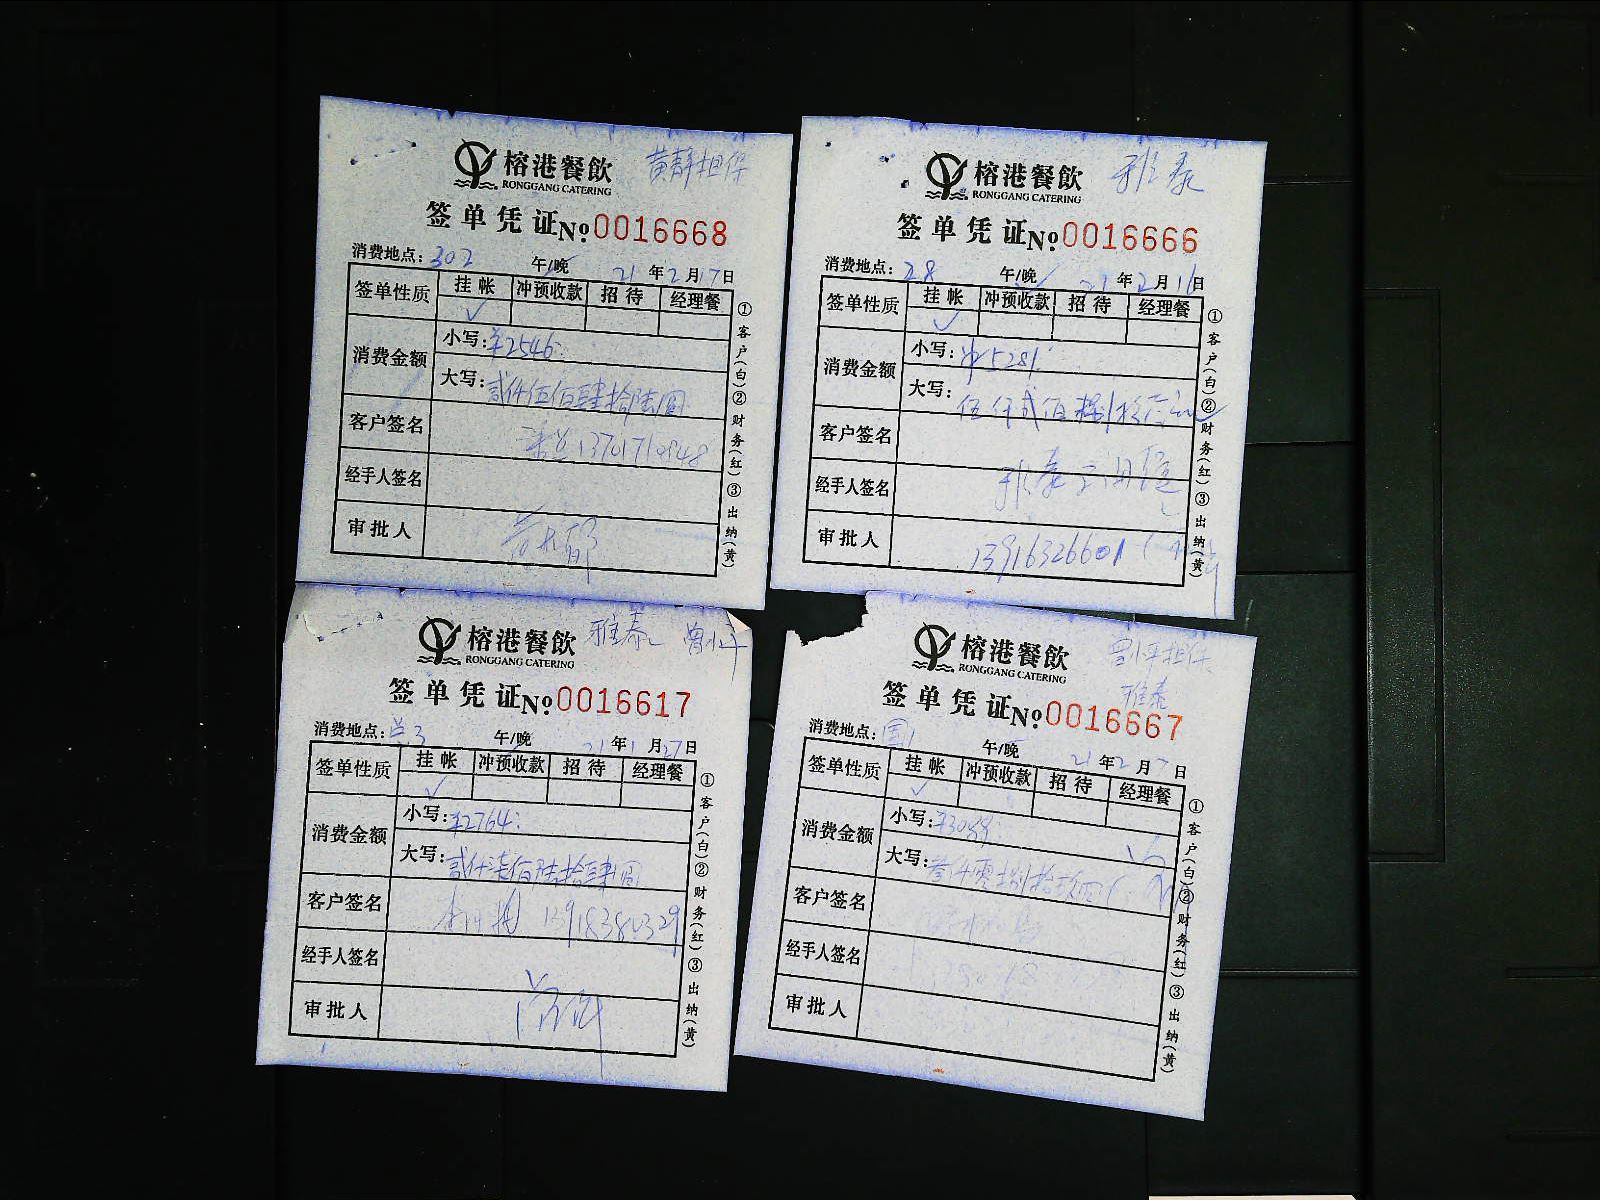 榕港餐飲 黄静担保
RONGGANG CATERING
签单凭证 №0016668
消费地点: 302 午/晚 21年2月17日
签单性质 挂帐 冲预收款 招待 经理餐
✓
消费金额 小写: ¥2546.
大写: 贰仟伍佰肆拾陆圆
客户签名
经手人签名
审批人
①客户(白)②财务(红)③出纳(黄)
榕港餐飲 雅泰
RONGGANG CATERING
签单凭证 №0016666
消费地点: 28 午/晚 21年2月16日
签单性质 挂帐 冲预收款 招待 经理餐
✓
消费金额 小写: ¥5281.
大写: 伍仟贰佰捌拾壹元
客户签名
经手人签名 雅泰
审批人 13916326601
①客户(白)②财务(红)③出纳(黄)
榕港餐飲 雅泰 曾小平
RONGGANG CATERING
签单凭证 №0016617
消费地点: 总3 午/晚 21年1月27日
签单性质 挂帐 冲预收款 招待 经理餐
✓
消费金额 小写: ¥2764.
大写: 贰仟柒佰陆拾肆圆
客户签名
经手人签名
审批人
①客户(白)②财务(红)③出纳(黄)
榕港餐飲 曾小平担保
RONGGANG CATERING 雅泰
签单凭证 №0016667
消费地点: 国1 午/晚 21年2月7日
签单性质 挂帐 冲预收款 招待 经理餐
✓
消费金额 小写:
大写: 叁仟零捌拾玖
客户签名
经手人签名
审批人
①客户(白)②财务(红)③出纳(黄)